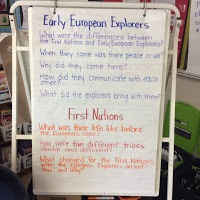 Early European Explorers
What were the differences between
the First Nations and Early European Explorers?
When they came was there peace or war?
Why did they come here?
How did they communicate with each
other?
What did the explorers bring with them?
First Nations
What was their life like before
the Europeans came?
How were the different tribes
similar and different?
What changed for the First Nations
when the European Explorers arrived?
How and why?